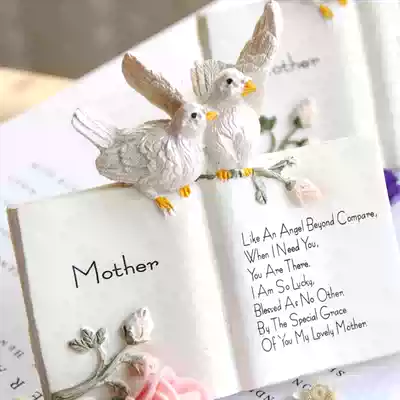 Mother
Like An Angel Beyond Compare,
When I Need You,
You Are There.
I Am So Lucky,
Blessed As No Other.
By The Special Grace
Of You My Lovely Mother.
other